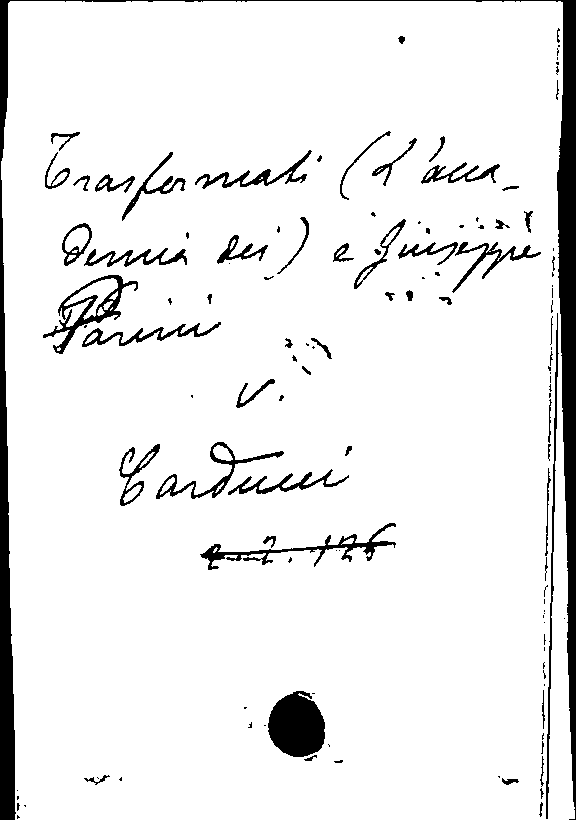 Trasformati (L'acca-
demia dei) e Giuseppe
Parini
v.
Carducci